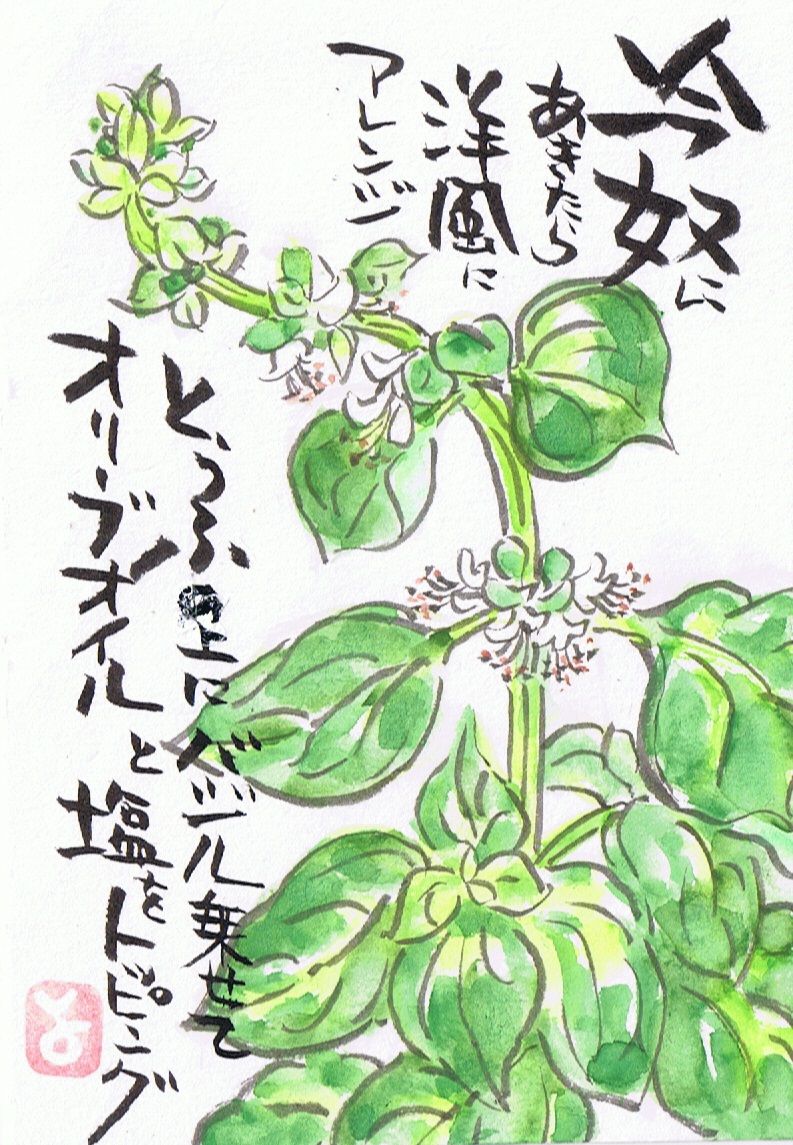 冷奴に
あきたら
洋風に
アレンジ
とうふの上にバジル乗せて
オリーブオイルと塩をトッピング
よ